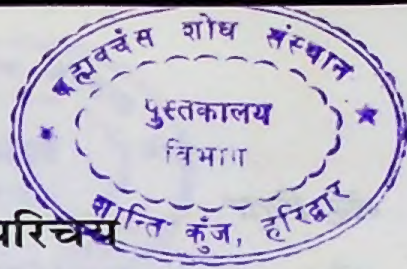 ब्रह्मवर्चस शोध संस्थान
पुस्तकालय
विभाग
शान्ति कुँज, हरिद्वार
परिचय